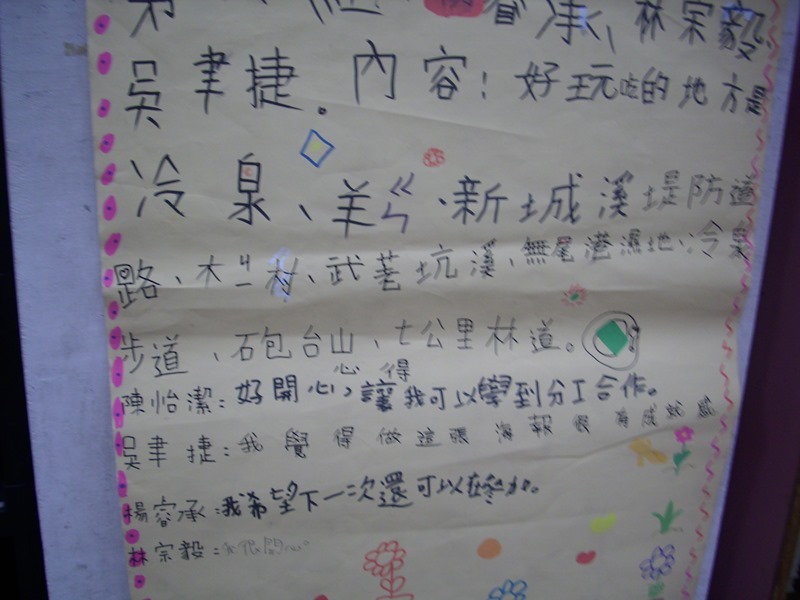 睿承、林宗毅
吳聿捷。內容:好玩吃的地方是
冷泉、羊ㄍㄣ、新城溪堤防道
路、木ㄐㄧ村、武荖坑溪、無尾港濕地、冷泉
步道、砲台山、七公里林道。
心得
陳怡潔:好開心,讓我可以學到分工合作。
吳聿捷:我覺得做這張海報很有成就感
楊睿承:我希望下一次還可以在參加。
林宗毅:很開心。